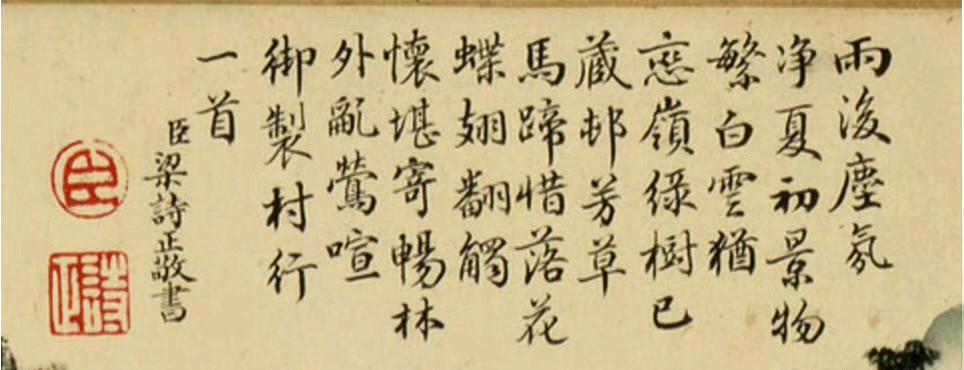 雨後塵氛
净夏初景物
繁白雲猶
恋嶺綠樹已
藏邨芳草
馬蹄惜落花
蝶翅翻觸
懷堪寄暢林
外亂鶯喧
御製村行
一首
臣梁詩正敬書
臣
詩正